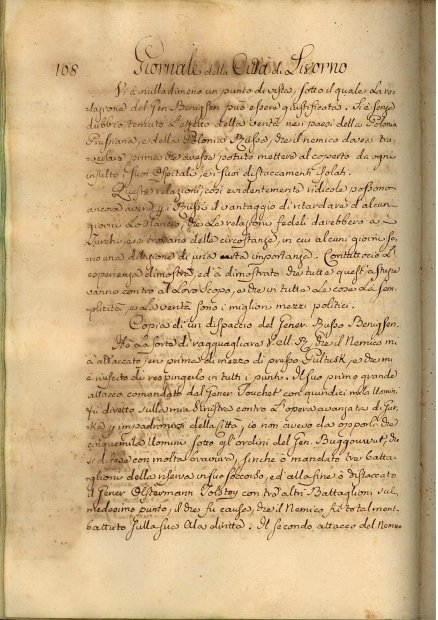 108 Giornale della Città di Livorno
Vi è nulladimeno un punto di vista, sotto il quale La re-
lazione del Gen. Benigsen può essere giustificata. Si è senza
dubbio temuto L'effetto della verità nei paesi della Polonia
Prussiana, e della Polonia Russa, che il nemico dovea tra-
versare prima che avesse potuto mettere al coperto da ogni
insulto i suoi Ospitali, e i suoi distaccamenti isolati.
Queste relazioni, così evidentemente ridicole possono
ancora avere p. i Russi il vantaggio di ritardare d'alcuni
giorni Lo slancio, che Le relazioni fedeli darebbero ai
Turchi, e si trovano delle circostanze, in cui alcuni giorni so-
no una dilazione di una certa importanza. Contuttociò L'
esperienza dimostra, ed à dimostrato che tutte quest'astuzie
vanno contro al Loro scopo, e che in tutte Le cose La sem-
plicità, e La verità sono i migliori mezzi politici.
Copia di un dispaccio del Gener. Russo Benigsen.
Ho La sorte di ragguagliare V. M. che il Nemico mi
à attaccato jeri prima di mezzo dì presso Pultusk, e che mi
è riuscito di respingerlo in tutti i punti. Il suo primo grande
attacco comandato dal Gener. Souchet con quindici mila Uomini,
fu diretto sulla mia sinistra contro L'opera avanzata di Gur-
ka p. impadronirsi della Città, io non avevo da opporli che
cinquemila Uomini sotto gli ordini del Gen. Buggouwut, che
si difese con molta bravura, finchè ò mandato tre batta-
glioni della riserva in suo soccorso, ed alla fine ò distaccato
il Gener. Ostermann Tolstoy con tre altri Battaglioni sul
medesimo punto, il che fu causa, che il Nemico fu totalment.
battuto sulla sua Ala diritta. Il secondo attacco del Nemico